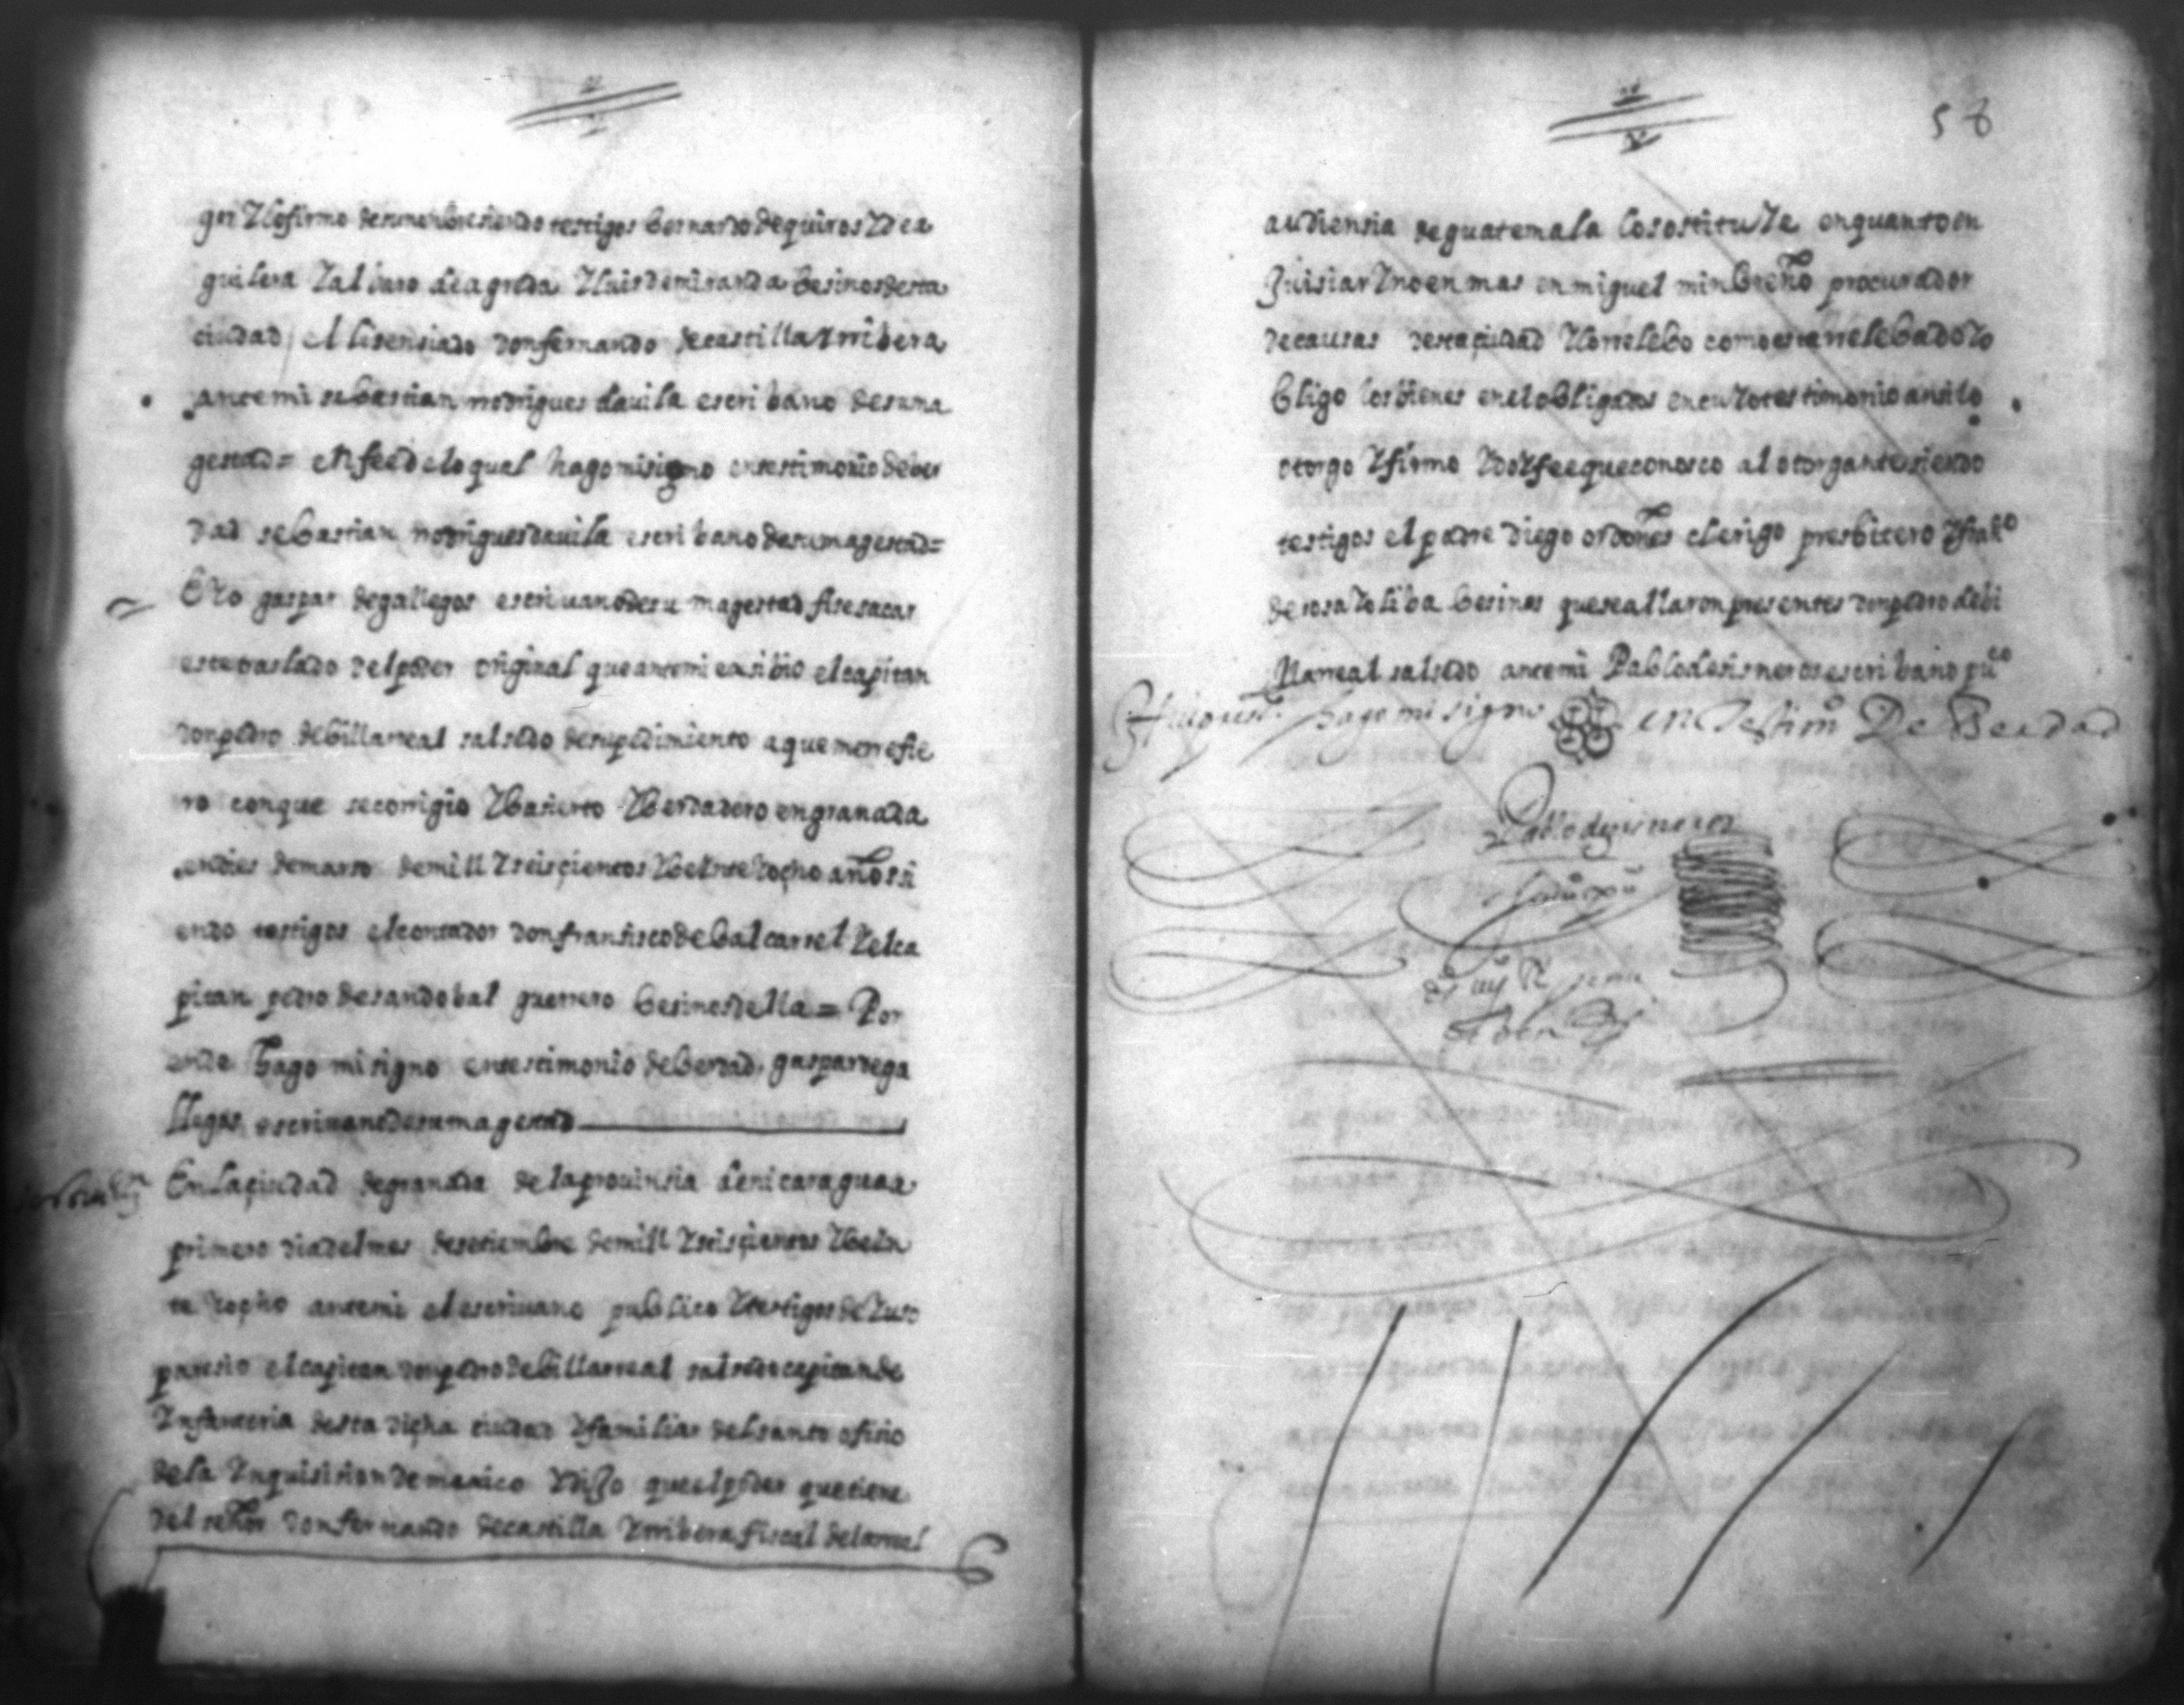 gar Y lo firmo de su nonbre siendo testigos bernardo de quiros Y de a
guilera Y albaro de agreda Y luis de miranda besinos desta
ciudad / el lisensiado don fernando de castilla Y rribera
ante mi sebastian rrodrigues davila escribano de su ma
gestad = en fee de lo qual hago mi signo en testimonio de ber
dad sebastian rrodrigues davila escribano de su magestad =
E Yo gaspar de gallegos escriuano de su magestad fise sacar
este traslado del poder original que ante mi exsibio el capitan
don pedro de billarreal salsedo de su pedimiento a que me rrefie
ro con que se corrigio Y ba sierto Y berdadero en granada
en dies de marso de mill Y seisçientos Y beinte Y ocho años si
endo testigos el contador don fransisco de balcarsel Y el ca
pitan pedro de sandobal guerrero besinos della = Por
ende hago mi signo en testimonio de berdad, gaspar de ga
llegos escriuano de su magestad
En la çiudad de granada de la prouinsia de nicaragua a
primero dia del mes de setiembre de mill Y seisçientos Y bein
te Y ocho ante mi el escriuano publico Y testigos de Yuso
paresio el capitan don pedro de billarreal salsedo capitan de
Ynfanteria desta dicha ciudad Y familiar del santo ofisio
de la Ynquisision de mexico Y dijo que el poder que tiene
del señor don fernando de castilla Y rribera fiscal de la rreal
58
audiensia de guatemala lo sostituYe en quanto en
Juisiar Y no en mas en miguel minbreño procurador
de causas desta çiudad Y lo rrelebo como esta rrelebado Y o
bligo los bienes en el obligados en cuYo testimonio ansi lo
otorgo Y firmo Y doY fee que conosco al otorgante siendo
testigos el padre diego ordoñes clerigo presbitero Y fran^co
de rosa Y oliba besinos que se allaron presentes don pedro de bi
llarreal salsedo ante mi Pablo de sisneros escribano pu^co
hago mi signo en testim^o De Berdad
Pablo de sisneros